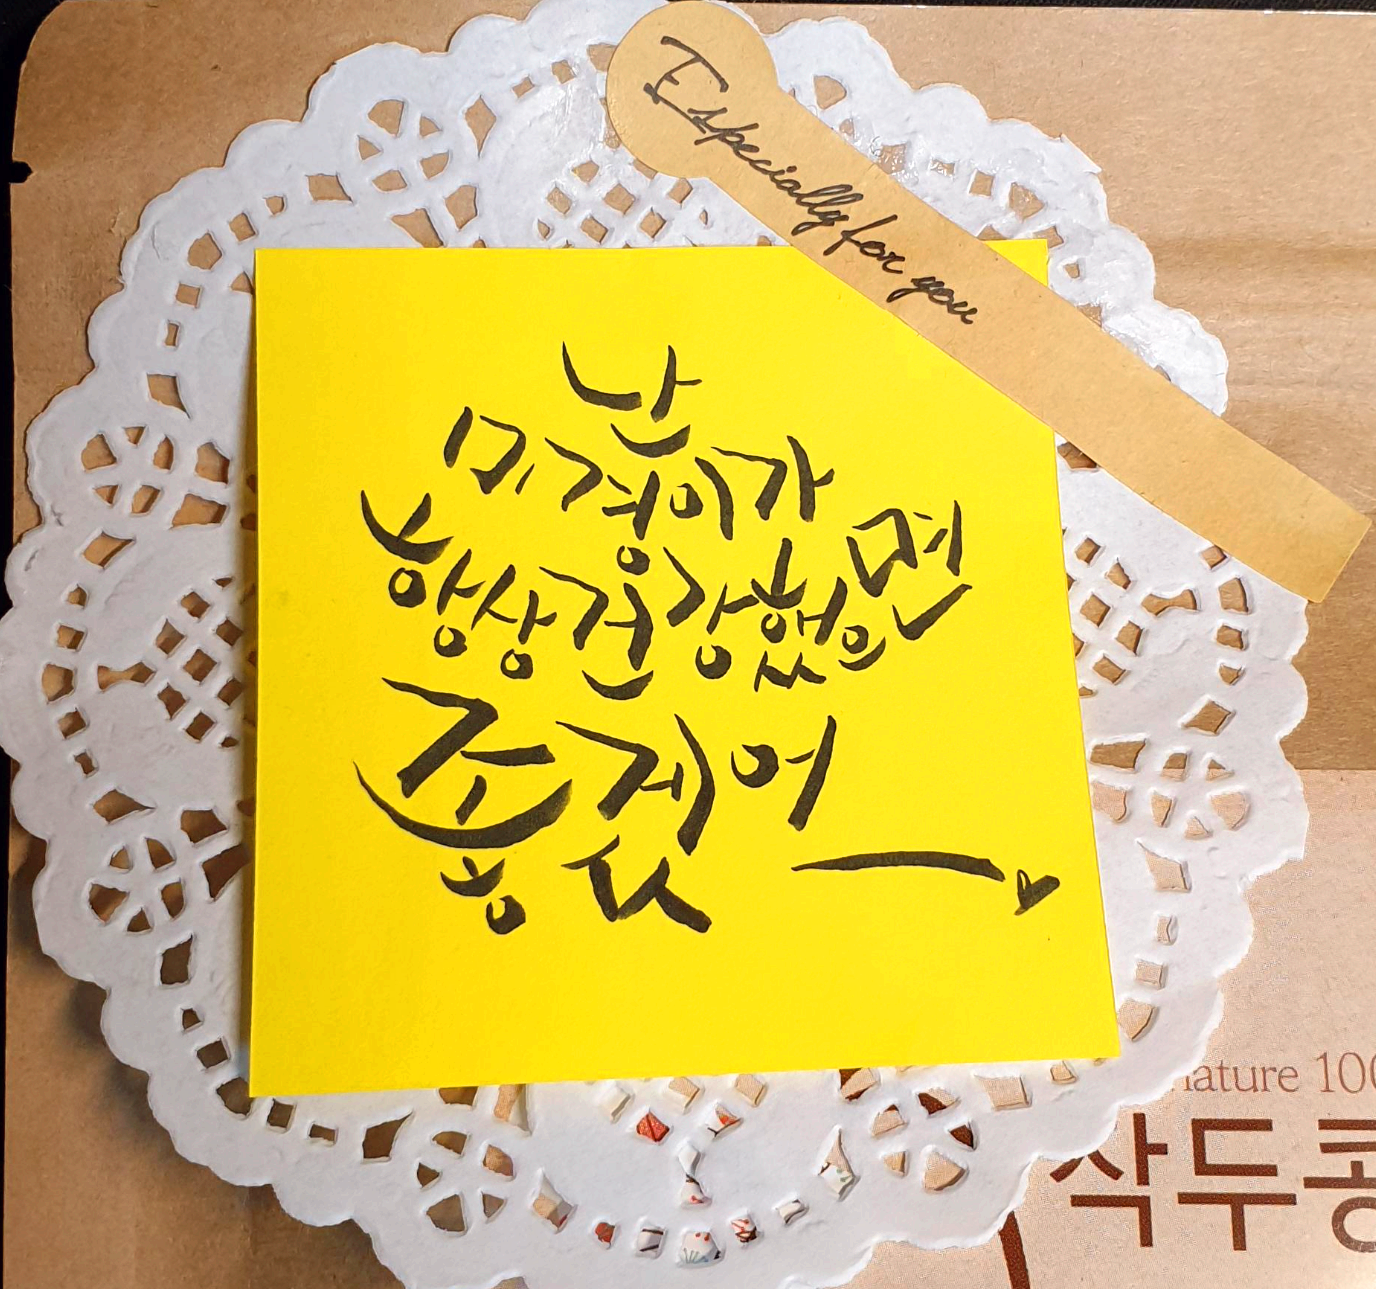 Especially for you
난
미경이가
항상건강했으면
좋겠어
nature 100
작두콩